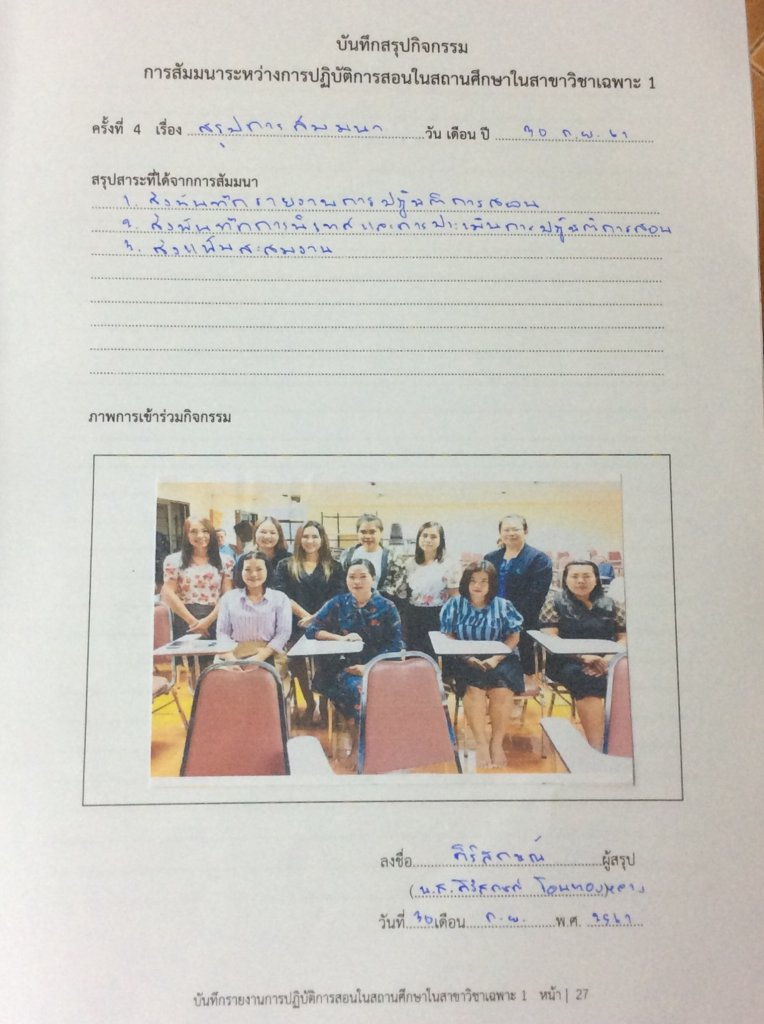 บันทึกสรุปกิจกรรม
การสัมมนาระหว่างการปฏิบัติการสอนในสถานศึกษาในสาขาวิชาเฉพาะ 1
ครั้งที่ 4 เรื่อง สรุปการสัมมนา วัน เดือน ปี 30 ก.ย. 61
สรุปสาระที่ได้จากการสัมมนา
1. ส่งบันทึกรายงานการปฏิบัติการสอน
2. ส่งบันทึกการนิเทศและการประเมินการปฏิบัติการสอน
3. ส่งแฟ้มสะสมงาน
ภาพการเข้าร่วมกิจกรรม
ลงชื่อ ผู้สรุป
(น.ส.
วันที่ 30 เดือน ก.ย. พ.ศ. 2561
บันทึกรายงานการปฏิบัติการสอนในสถานศึกษาในสาขาวิชาเฉพาะ 1 หน้า | 27